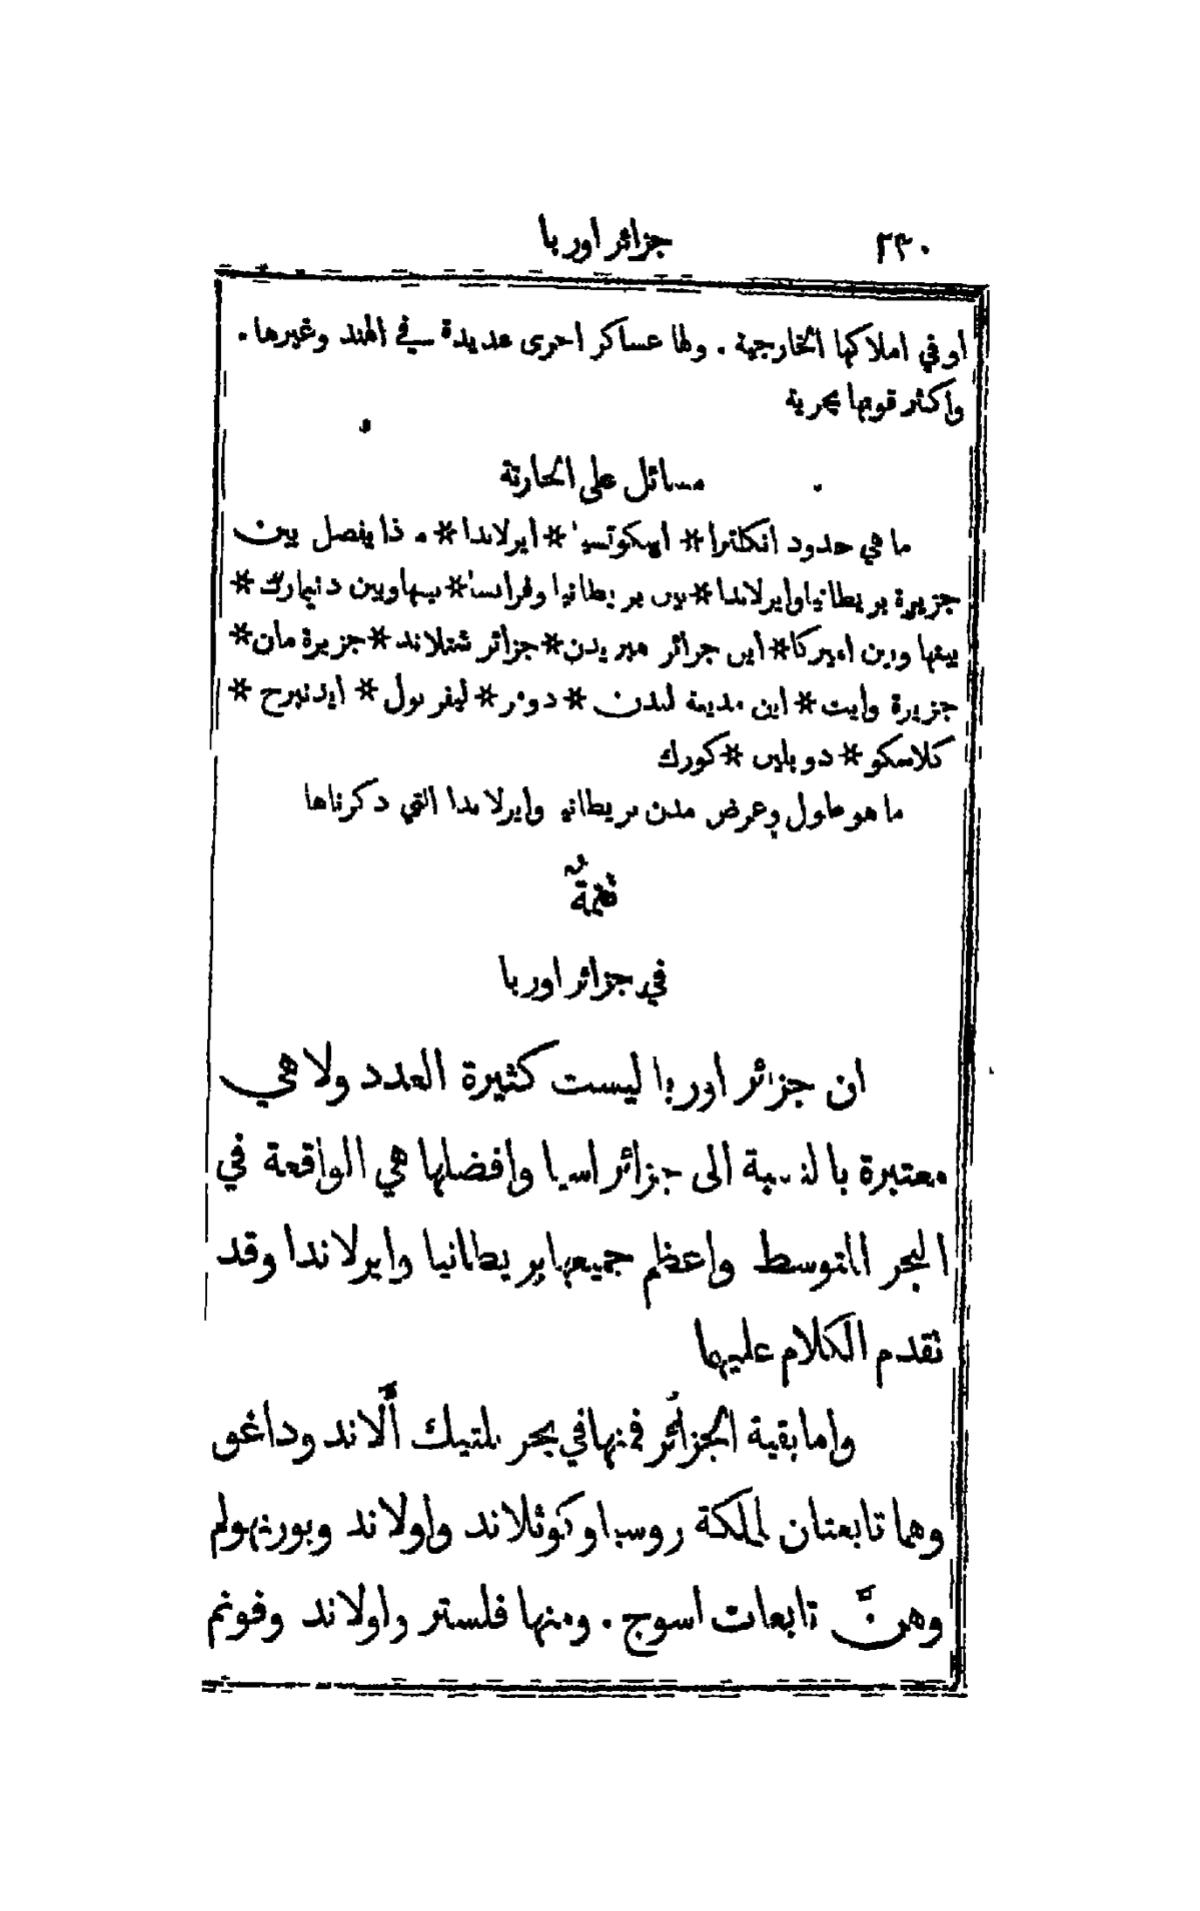 ٢٣٠ جزائر اوربا
او في املاكها الخارجية . ولها عساكر اخرى عديدة في الهند وغيرها .
واكثر قوتها بحرية
مسائل على الخارتة
ما هي حدود انكلترا * اسكوتسيا * ايرلاندا * ما ذا يفصل بين
جزيرة بريطانيا وايرلاندا * بين بريطانيا وفرانسا * بينها وبين دنيمارك *
بينها وبين اميركا * اين جزائر هبريدن * جزائر شتلاند * جزيرة مان *
جزيرة وايت * اين مدينة لندن * دوفر * ليفربول * ايدنبرح *
كلاسكو * دوبلين * كورك
ما هو طول وعرض مدن بريطانيا وايرلاندا التي ذكرناها
تتمةٌ
في جزائر اوربا
ان جزائر اوربا ليست كثيرة العدد ولا هي
معتبرة بالنسبة الى جزائر اسيا وافضلها هي الواقعة في
البحر المتوسط واعظم جميعها بريطانيا وايرلاندا وقد
تقدم الكلام عليهما
واما بقية الجزائر فمنها في بحر بلتيك ألاند وداغو
وهما تابعتان لمملكة روسيا وكوثلاند واولاند وبورنهولم
وهنَّ تابعات اسوج . ومنها فلستر واولاند وفونم